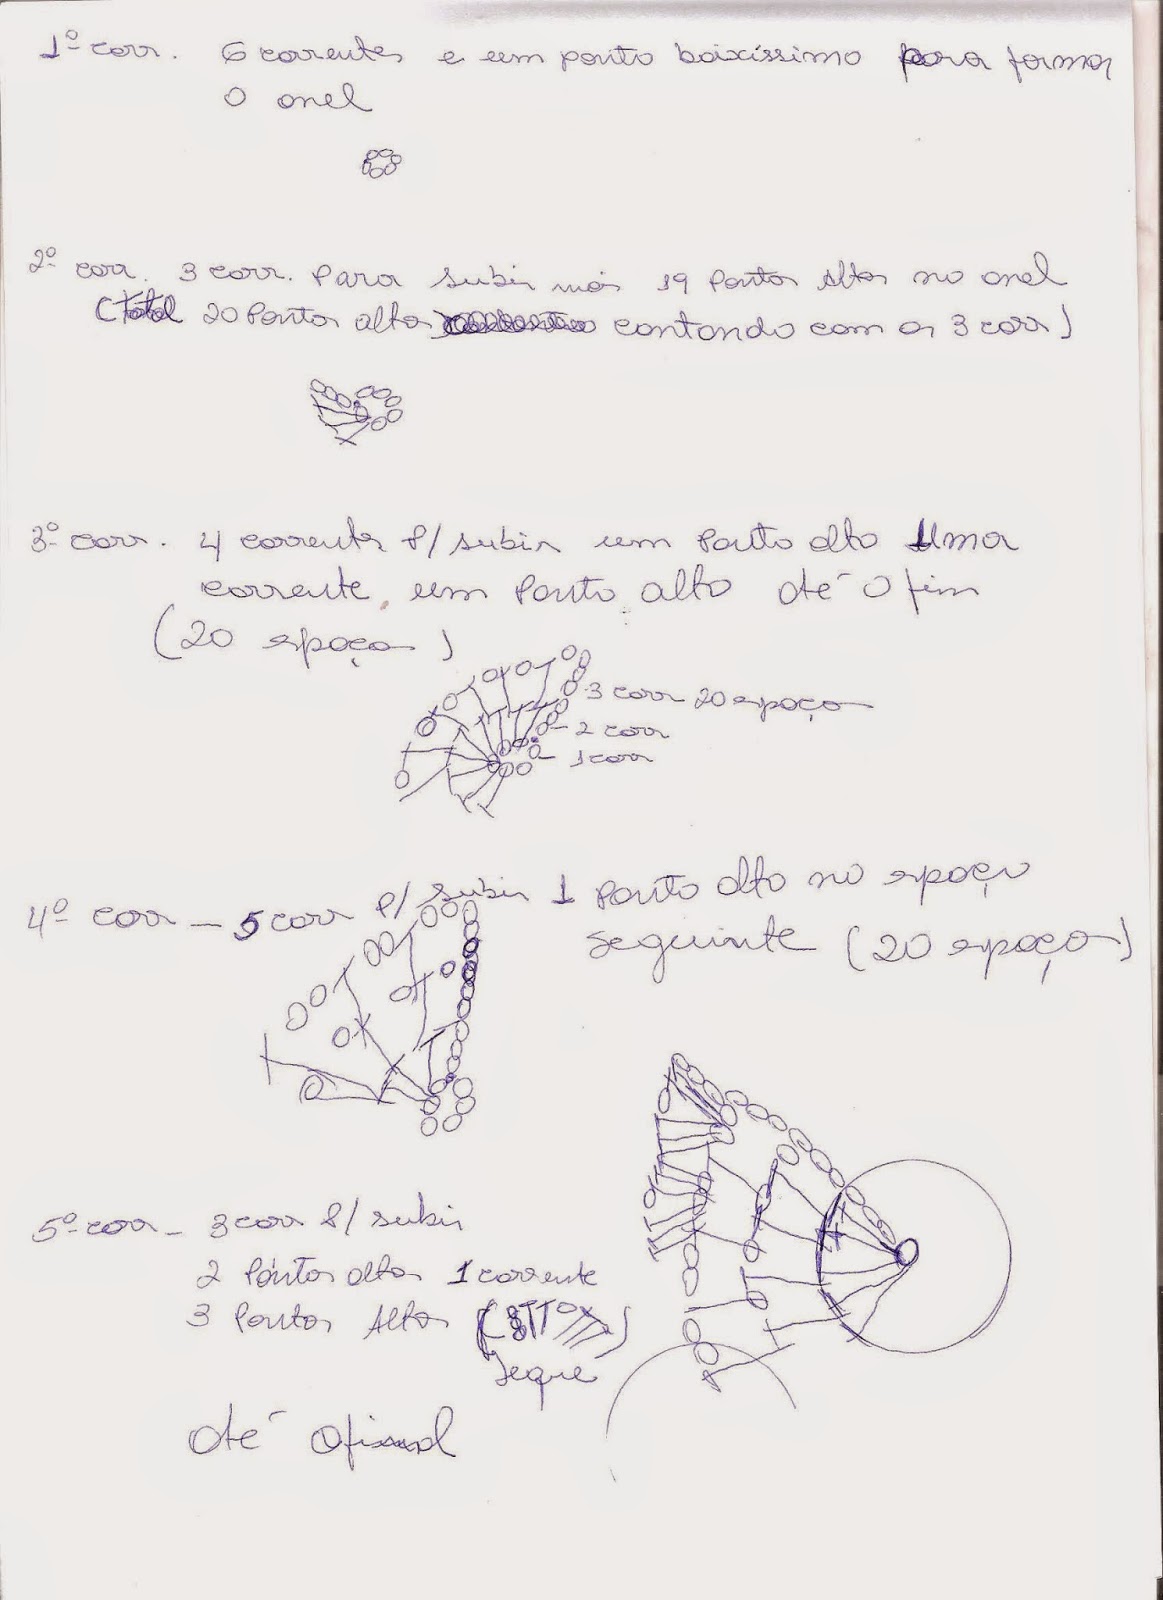 1º corr. 6 correntes e um ponto baixíssimo para formar
o anel
2º corr. 3 corr. para subir mais 19 Pontos Altos no anel
(total 20 Pontos altos contando com as 3 corr)
3º corr. 4 correntes P/ subir um Ponto alto Uma
corrente, um Ponto alto até o fim
(20 espaços)
3 corr 20 espaços
2 corr
1 corr
4º corr - 5 corr P/ subir 1 Ponto alto no espaço
seguinte (20 espaços)
5º corr - 3 corr P/ subir
2 Pontos altos 1 corrente
3 Pontos Altos
segue
até o final